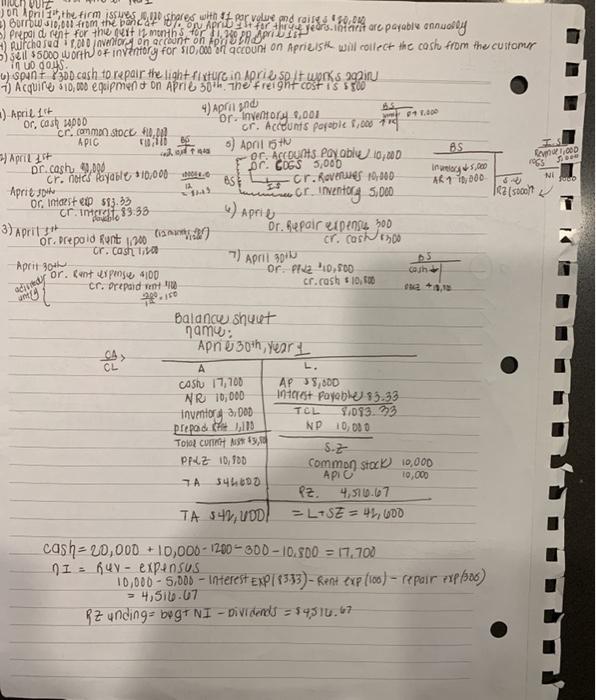 1) on April 1st, the firm issues 10,000 shares with $1 par value and raise $20,000
2) Borrow $10,000 from the bank at 10%, on April 1st for three years. interest are payable annually
3) Prepaid rent for the next 12 months for $1,200 on April 1st
4) Purchased $8,000 inventory on account on April 2nd
5) sell $5000 worth of inventory for $10,000 on account on April 15th will collect the cash from the customer
in 60 days.
6) spent $300 cash to repair the light fixture in April so it works again
7) Acquire $10,000 equipment on April 30th. The freight cost is $800
1) April 1st
Dr. cash 20,000
cr. common stock $10,000
APIC $10,000
2) April 1st
Dr. cash 10,000
cr. notes Payable $10,000
April 30th
Dr. Interest exp $83.33
cr. interest payable 83.33
3) April 1st
Dr. prepaid Rent 1,200
cr. cash 1,200
April 30th
Dr. Rent expense $100
cr. prepaid rent $100
4) April 2nd
Dr. Inventory 8,000
cr. Accounts payable 8,000
BS
5) April 15th
Dr. Accounts Payable 10,000
Dr. COGS 5,000
BS
IS
cr. Revenues 10,000
cr. Inventory 5,000
BS
Inventory ↓ 5,000
AR ↑ 10,000
RE (5000)↑
I.S
NI
6) April
Dr. Repair expense 300
cr. cash $300
7) April 30th
Dr. PP&E $10,800
cr. cash $10,800
BS
cash ↓
Balance sheet
name:
April 30th, year 1
CA
CL
A
L.
cash 17,700
AP $8,000
N/R 10,000
Interest Payable 83.33
Inventory 3,000
TCL 8,083.33
prepaid Rent 1,100
NP 10,000
S.E
PP&E 10,800
common stock 10,000
APIC 10,000
RE. 4,516.67
TA $42,600
TA $42,600
= L+SE = 42,600
cash = 20,000 + 10,000 - 1200 - 300 - 10,800 = 17,700
NI = Rev - expenses
10,000 - 5,000 - Interest EXP (83.33) - Rent exp (100) - repair exp (300)
= 4,516.67
RE ending = beg + NI - Dividends = $4,516.67